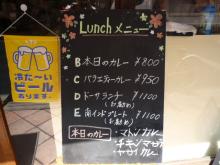 Lunch メニュー
B 本日のカレー ¥800
C バラエティーカレー ¥950
D ドーサランチ ¥1100
(お勧め)
E 南インドプレート ¥1100
(お勧め)
本日のカレー
・マトンカレー
・チキンマサラ
・ヤサイカレー
冷た〜い
ビール
あります。